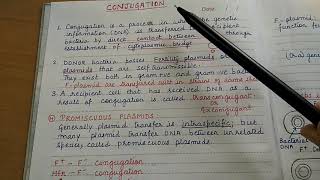 CONJUGATION
Date
1. Conjugation is a process in which genetic
information (cell) is transferred
bacteria by direct contact between
establishment of cytoplasmic bridge
2. Donor bacteria posses Fertility plasmids or
plasmids that are self transmissible.
They exist both in gram +ve and gram -ve bacteria
F-plasmid are transferred with or strain of same
3. A recipient cell that has received DNA as a
result of conjugation is called transconjugant
or
Exconjugant
PROMISCUOUS PLASMIDS:
Generally plasmid transfer is intraspecific, but
many plasmid transfer DNA between unrelated
species called promiscuous plasmids.
F+ - F- conjugation
Hfr - F- conjugation
F-plasmid
Bacterial
DNA